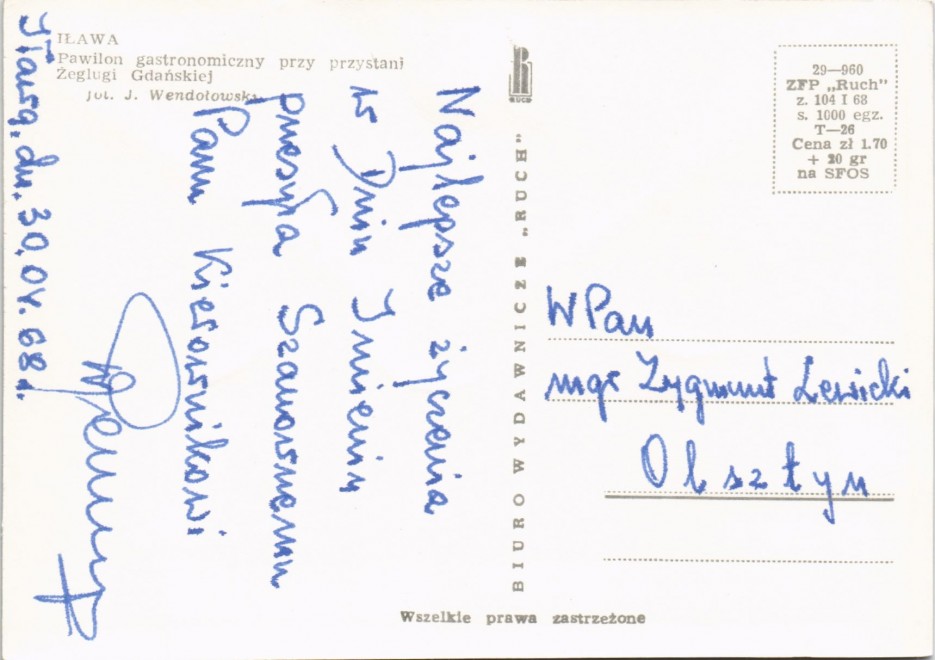 IŁAWA
Pawilon gastronomiczny przy przystani
Żeglugi Gdańskiej
fot. J. Wendołowski
Iława, dn. 30.04.68 r.
Najlepsze życzenia
w Dniu Imienin
przesyła Szanownemu
Panu Kierownikowi
RUCH
BIURO WYDAWNICZE „RUCH"
29—960
ZFP „Ruch"
z. 104 I 68
s. 1000 egz.
T—26
Cena zł 1.70
+ 20 gr
na SFOS
WPan
mgr Zygmunt Lewicki
Olsztyn
Wszelkie prawa zastrzeżone